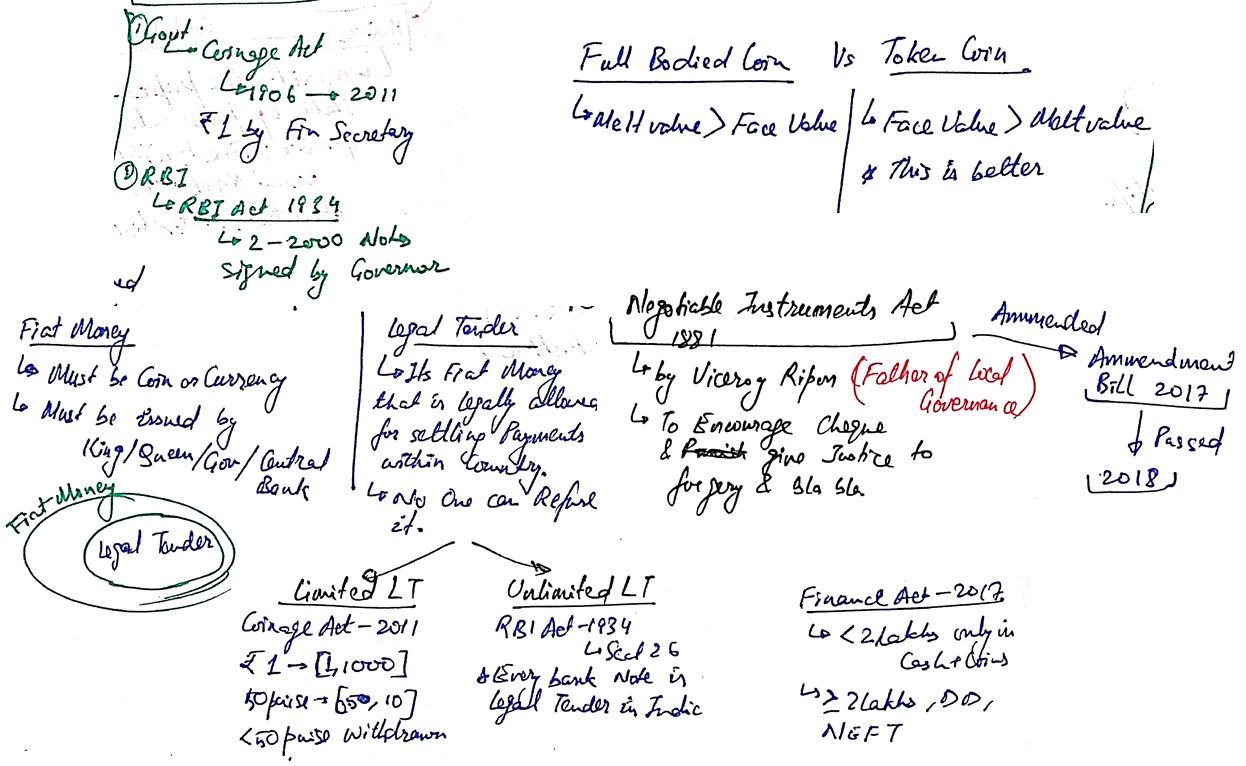 ① Govt.
↳ Coinage Act
↳ 1906 → 2011
₹1 by Fin Secretary
② RBI
↳ RBI Act 1934
↳ 2-2000 Notes
signed by Governor
Full Bodied Coin Vs Token Coin
↳ Melt value > Face Value
↳ Face Value > Melt value
* This is better
ed
Fiat Money
↳ Must be Coin or Currency
↳ Must be issued by
King/Queen/Gov/Central
Bank
Fiat Money
Legal Tender
Legal Tender
↳ Its Fiat Money
that is legally allowed
for settling Payments
within Country.
↳ No One can Refuse
it.
Negotiable Instruments Act
1881
↳ by Viceroy Ripon (Father of Local
Governance)
↳ To Encourage Cheque
& give Justice to
forgery & bla bla
Ammended
Ammendment
Bill 2017
↓ Passed
2018
Limited LT
Coinage Act - 2011
₹1 → [1, 1000]
50 paise → [50, 10]
<50 paise withdrawn
Unlimited LT
RBI Act - 1934
↳ Sec 26
* Every bank Note is
Legal Tender in India
Finance Act - 2017
↳ < 2 Lakhs only in
Cash + Coins
↳ ≥ 2 Lakhs, DD,
NEFT